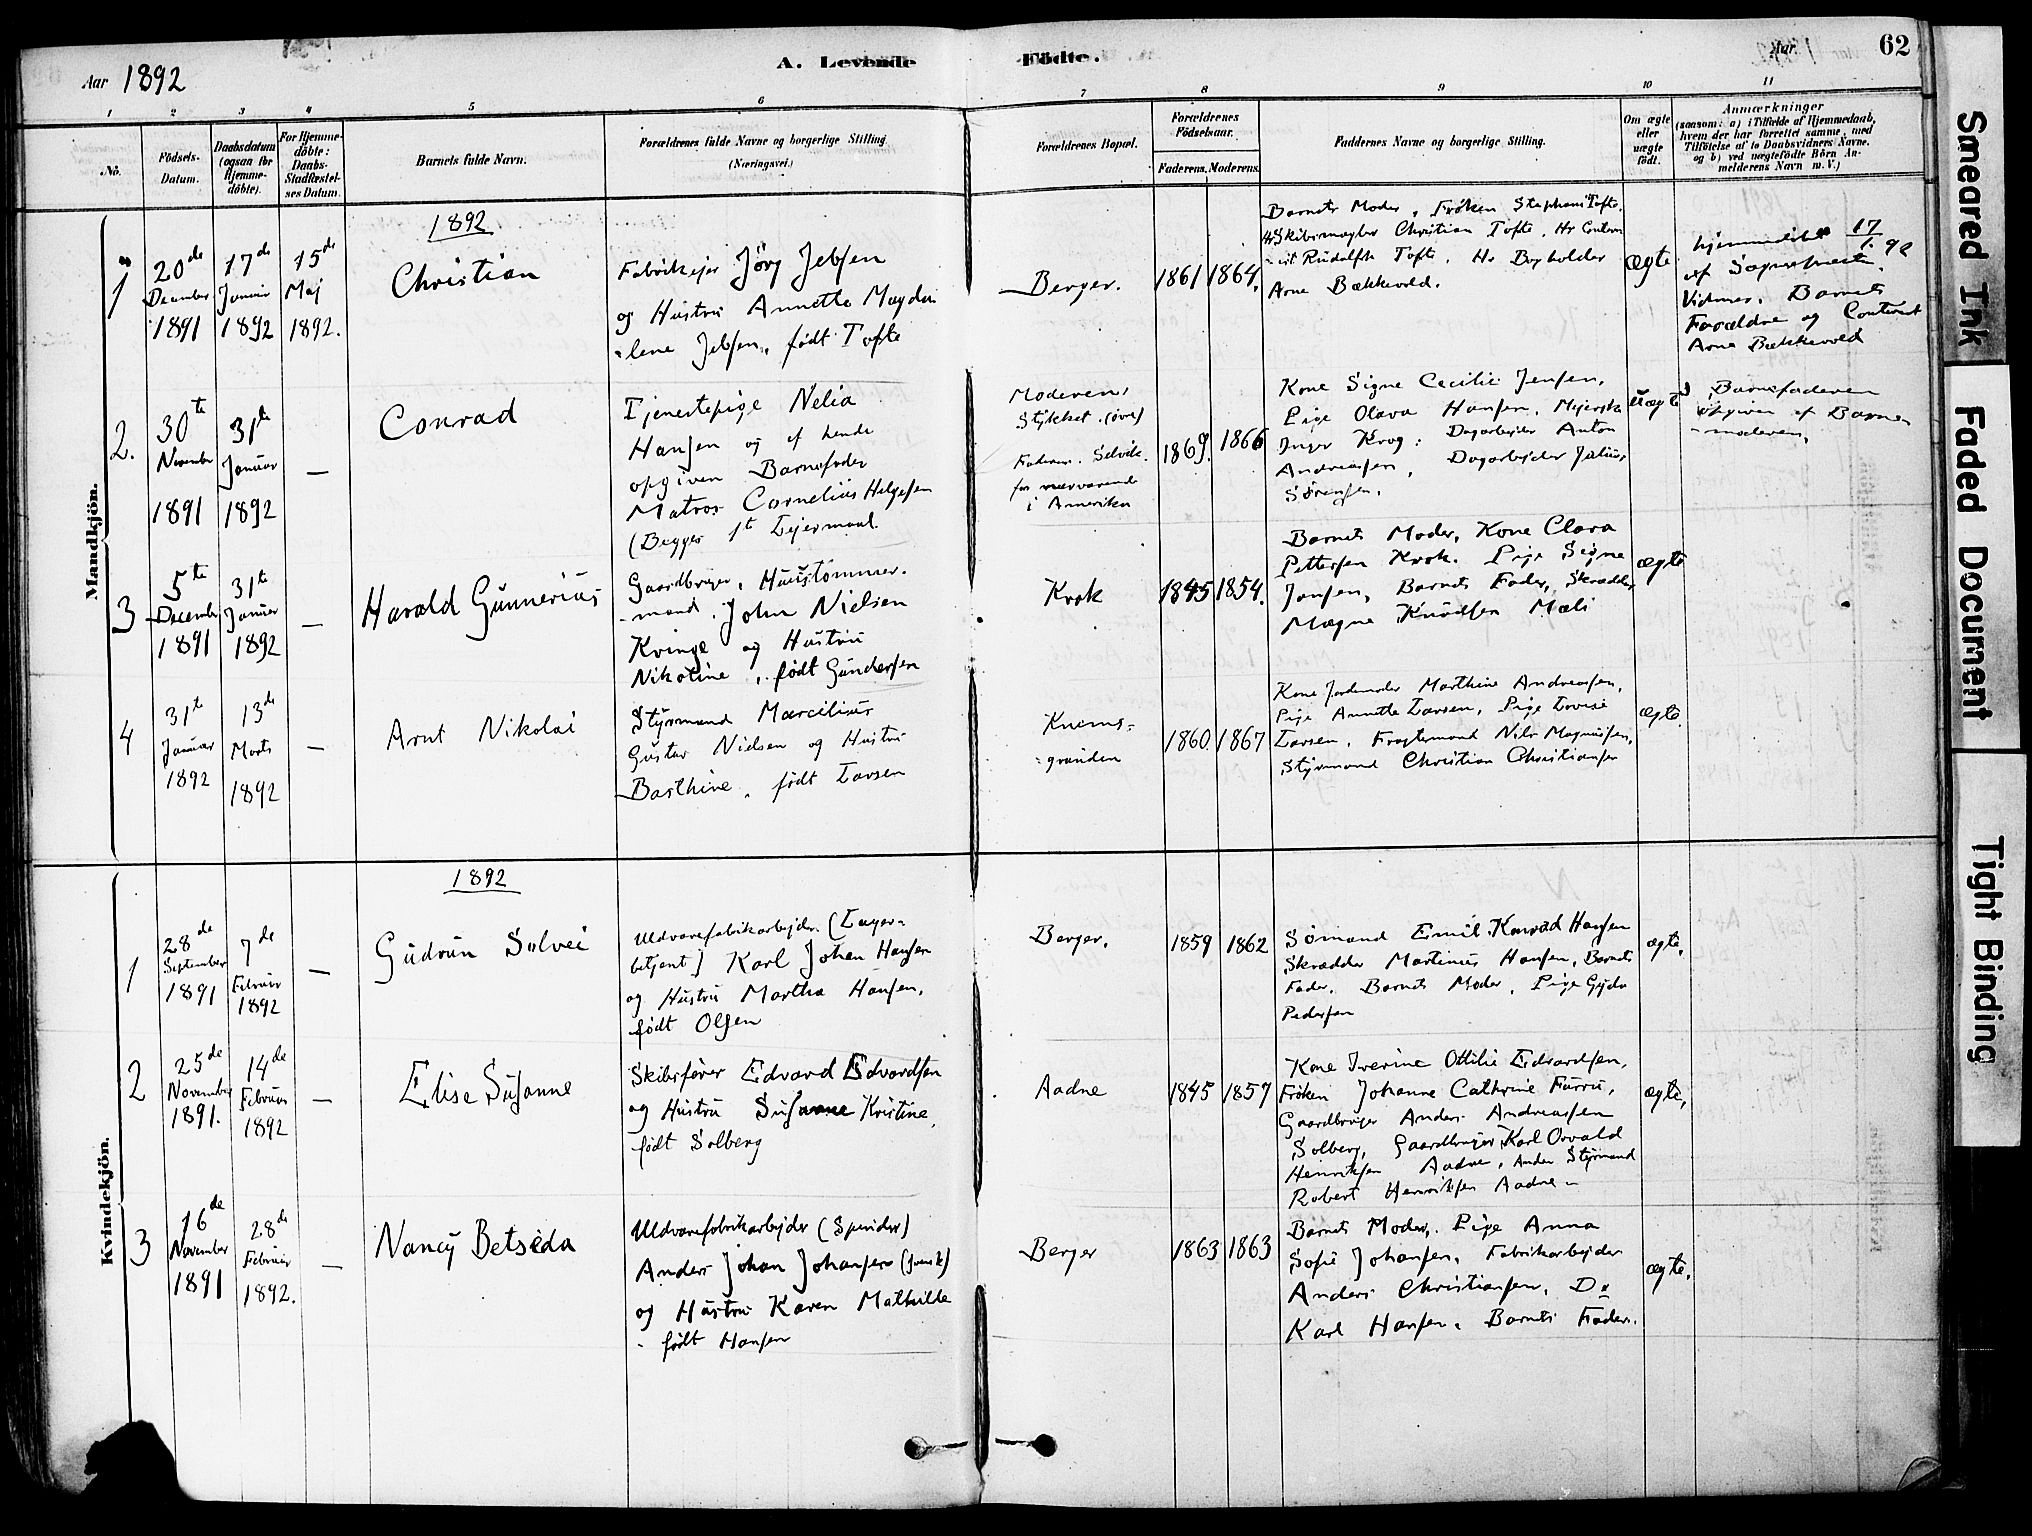 Aar 1892
A. Levende Födte.
Aar
62
1 2 3 4 5 6 7 8 9 10 11
No.
Födsels-Datum.
Daabsdatum (ogsaa for Hjemme-döbte).
For Hjemme-döbte: Daabs-Stadfæstel-ses Datum.
Barnets fulde Navn.
Forældrenes fulde Navne og borgerlige Stilling. (Næringsvei.)
Forældrenes Bopæl.
Forældrenes Födselsaar.
Faderens. Moderens.
Faddernes Navne og borgerlige Stilling.
Om ægte eller uægte födt.
Anmærkninger
(saasom: a) i Tilfælde af Hjemmedaab,
hvem der har forrettet samme, med
Tilföielse af to Daabsvidners Navne,
og b) ved uægtefödte Börn An-
melderens Navn m. V.)
Mandkjön.
1892
1
20de December 1891
17de Januar 1892
15de Maj 1892.
Christian
Fabrikejer Jörg Jebsen
og Hustru Annette Magda-
lene Jebsen, født Tofte
Berger.
1861 1864.
Barnets Moder, Frøken Stephani Tofte,
Hr Skibsmægler Christian Tofte, Hr
Rudolf Tofte, Hr Bogholder
Arne Bækkevold.
ægte
hjemmedøbt 17/1 92
af Sognepræsten.
Vidner. Barnets
Forældre og Contorist
Arne Bækkevold
2.
30te November 1891
31te Januar 1892
—
Conrad
Tjenestepige Nelia
Hansen og af hende
opgiven Barnefader
Matros Cornelius Helgesen
(Begges 1te Lejermaal.
Moderens
Stykket (øvre)
Faderen. Selvik.
for nærværende
i Amerika
1869. 1866
Kone Signe Cecilie Jensen,
Pige Olava Hansen, Mejerske
Inger Krog. Dagarbejder Anton
Andreassen, Dagarbejder Julius
Sørensen.
uægte
Barnefaderen
opgiven af Barne-
moderen.
3
5te December 1891
31te Januar 1892
—
Harald Gunnerius
Gaardbruger, Huustømmer-
mand. John Nielsen
Kvinge og Hustru
Nikoline, født Gundersen
Krok
1845 1854.
Barnets Moder, Kone Clara
Pettersen Krok. Pige Signe
Jansen, Barnets Fader, Skrædder
Magne Knudsen Mæli
ægte
4
31te Januar 1892
13de Marts 1892
—
Arnt Nikolai
Styrmand Marcelius
Gustav Nielsen og Hustru
Basthine, født Larsen
Knems-
grunden
1860 1867
Kone Jordemoder Marthine Andreassen,
Pige Annette Larsen, Pige Lovise
Larsen, Fragtemand Nils Magnussen,
Styrmand Christian Christiansen
ægte.
Kvindekjön.
1892
1
28de September 1891
7de Februar 1892
—
Gudrun Solvei
Uldvarefabrikarbejder (Lager-
betjent) Karl Johan Hansen
og Hustru Martha Hansen,
født Olsen
Berger.
1859 1862
Sømand Emil Konrad Hansen
Skrædder Martinus Hansen, Barnets
Fader. Barnets Moder, Pige Gyda
Pedersen
ægte.
2
25de November 1891.
14de Februar 1892
—
Elise Susanne
Skibsfører Edvard Edvardsen
og Hustru Susanne Kristine,
født Solberg
Aadne
1845 1857
Kone Iverine Ottilie Edvardsen,
Frøken Johanne Cathrine Furru,
Gaardbruger Anders Andreassen
Solberg, Gaardbruger Karl Osvald
Henriksen Aadne, Styrmand
Robert Henriksen Aadne
ægte,
3
16de November 1891
28de Februar 1892.
—
Nancy Betseda
Uldvarefabrikarbejder (Spinder)
Anders Johan Johansen (svensk)
og Hustru Karen Mathilde
født Hansen
Berger
1863 1863
Barnets Moder, Pige Anna
Sofie Johansen, Fabrikarbejder
Anders Christiansen, Do
Karl Hansen, Barnets Fader.
ægte.
Smeared Ink
Faded Document
Tight Binding